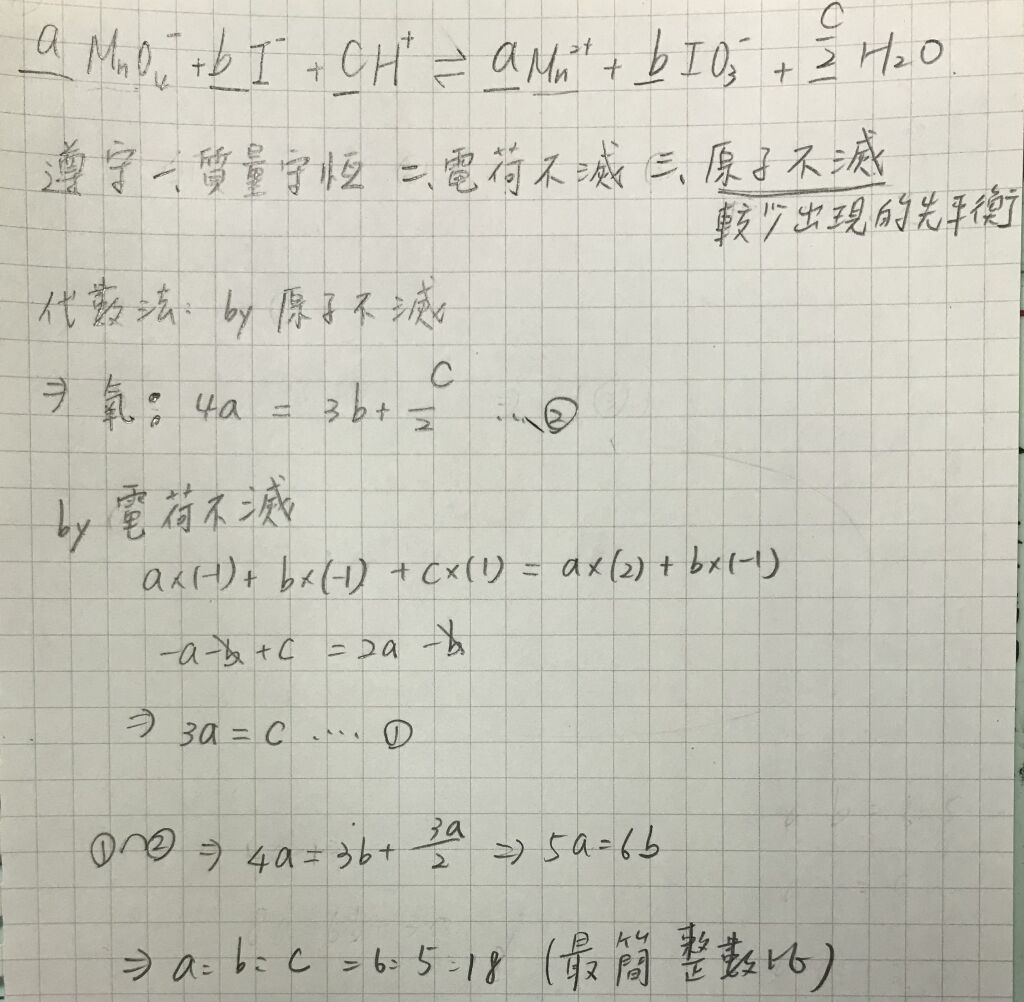 a MnO₄⁻ + b I⁻ + C H⁺ ⇌ a Mn²⁺ + b IO₃⁻ + C/2 H₂O.
遵守 一、質量守恆 二、電荷不滅 三、原子不滅
較少出現的先平衡
代數法: by 原子不滅
⇒ 氧: 4a = 3b + C/2 ... ②
by 電荷不滅
a×(-1) + b×(-1) + c×(1) = a×(2) + b×(-1)
-a-b+c = 2a-b
⇒ 3a = C .... ①
①~② ⇒ 4a = 3b + 3a/2 ⇒ 5a = 6b
⇒ a:b:c = 6:5:18 (最簡整數比)